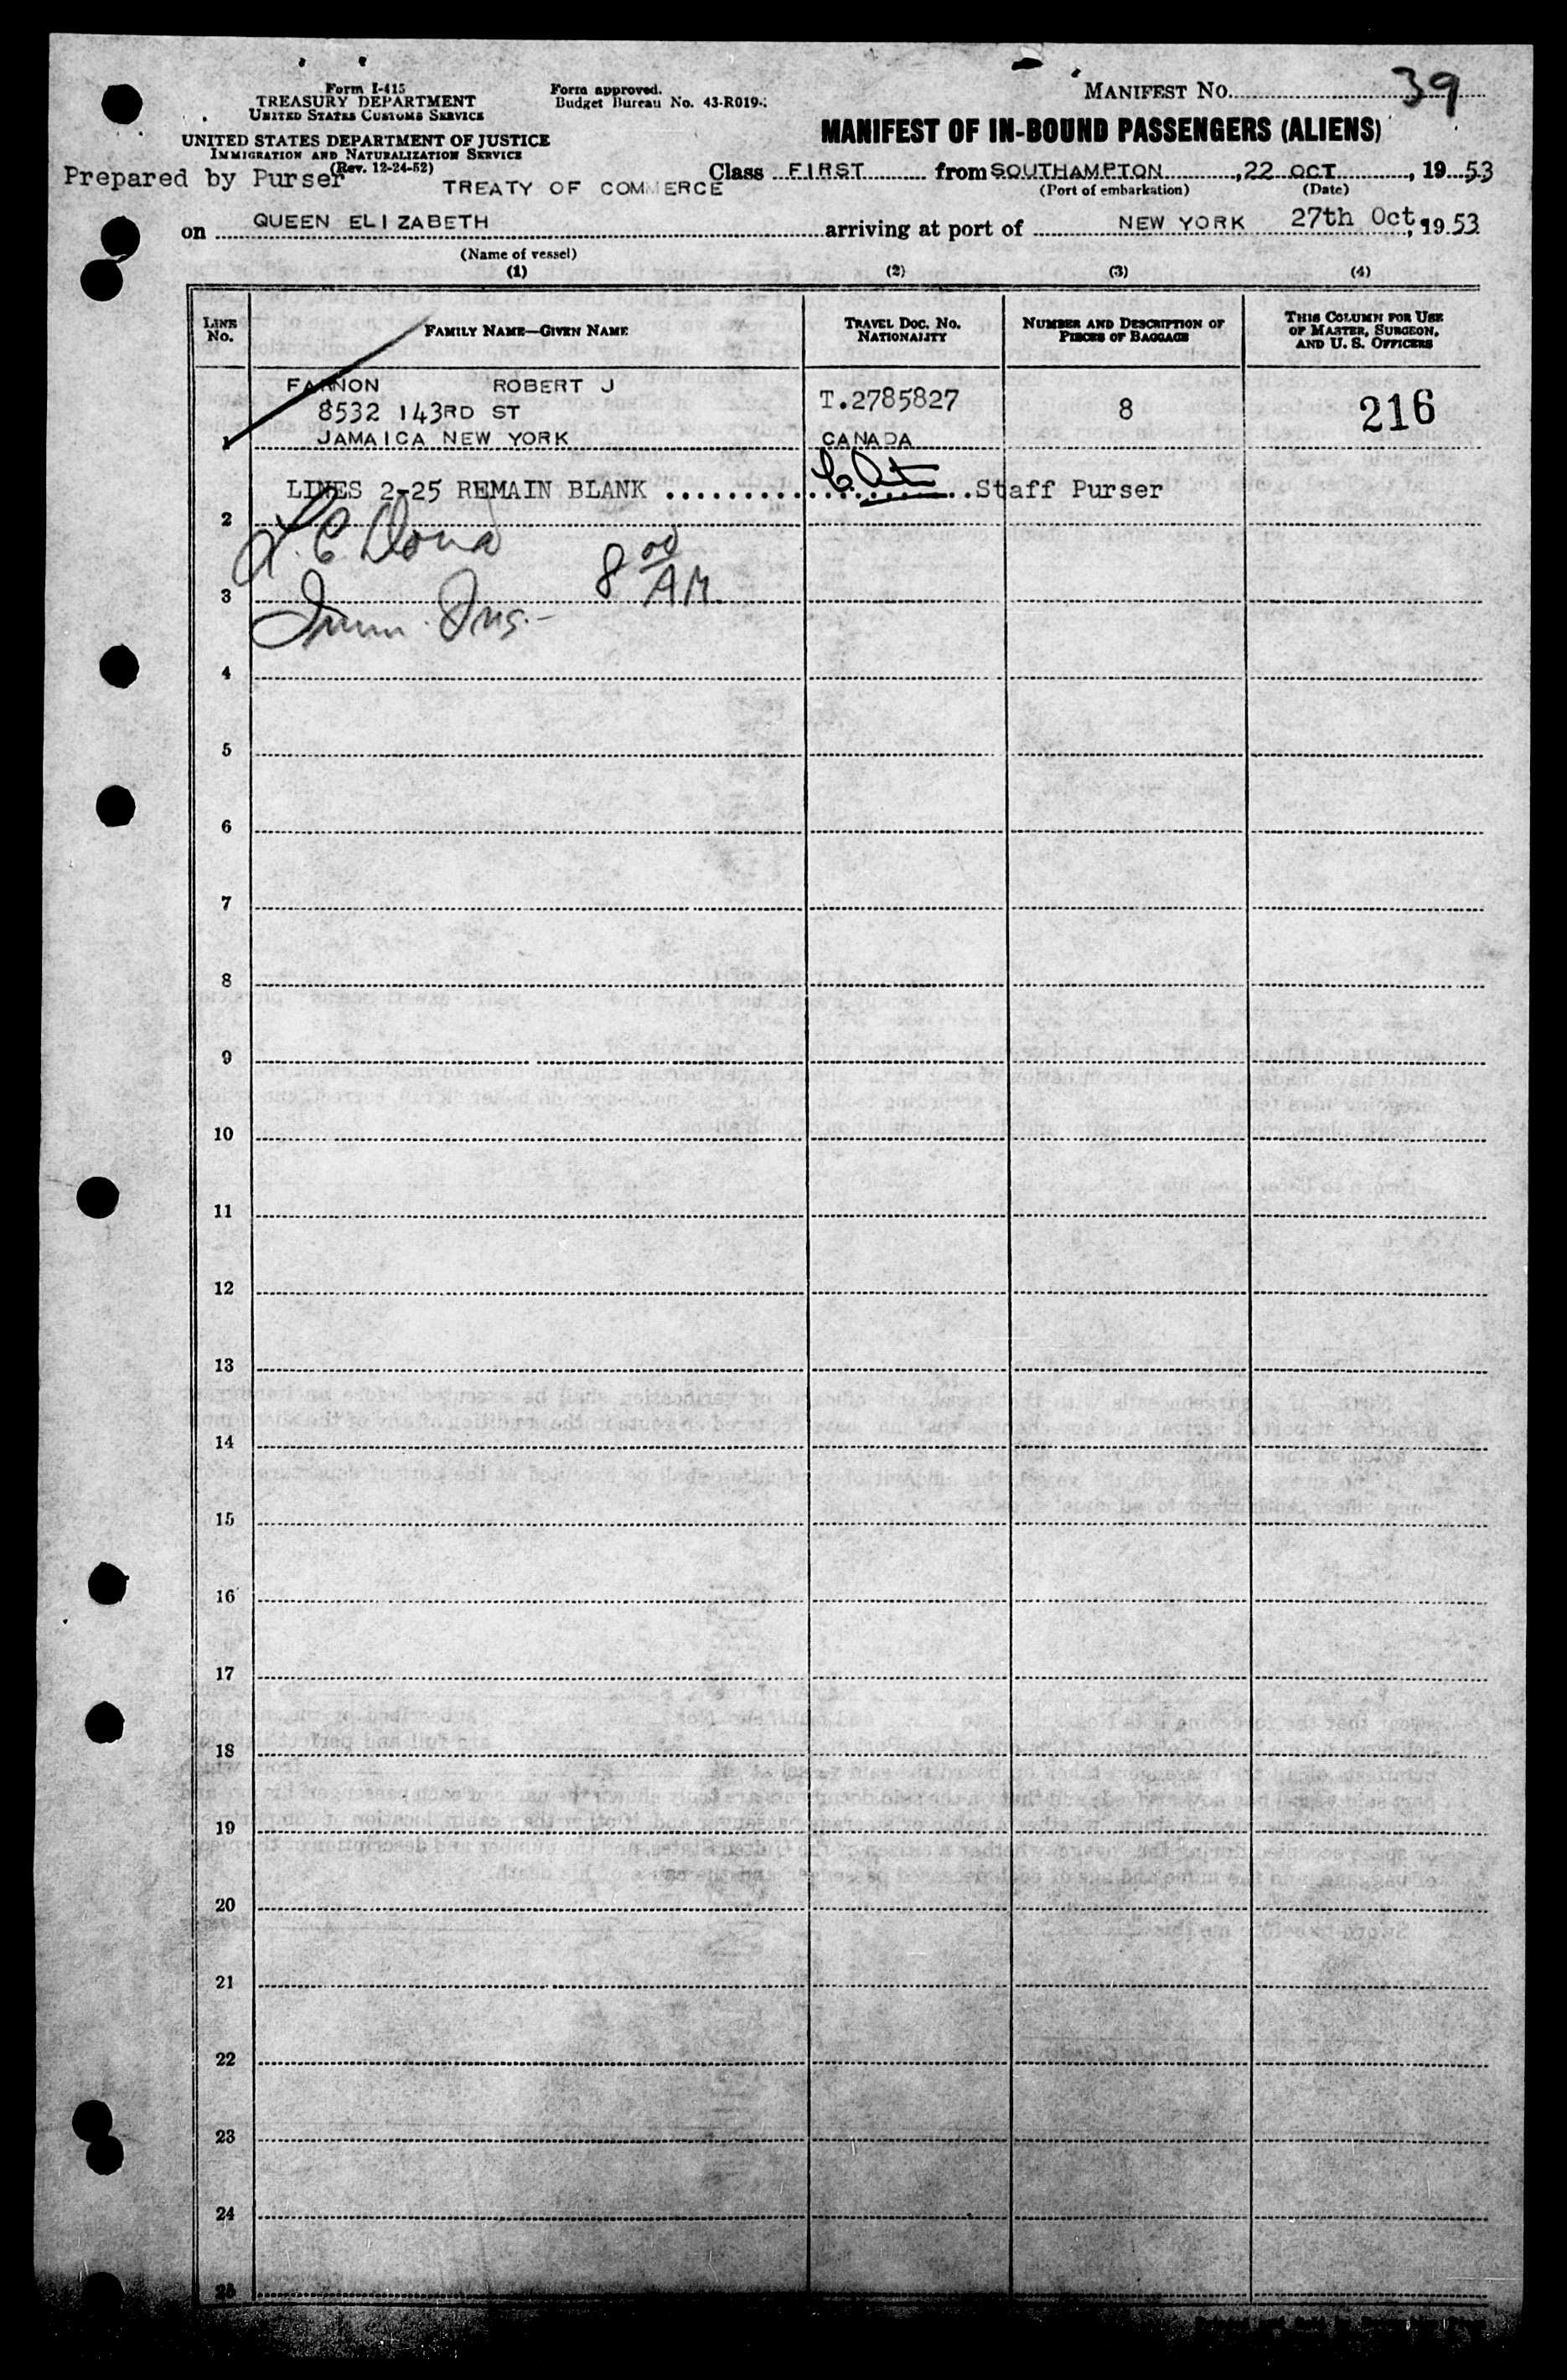 MANIFEST NO. 39
Form I-415
TREASURY DEPARTMENT
UNITED STATES CUSTOMS SERVICE
Form approved.
Budget Bureau No. 43-R019-
UNITED STATES DEPARTMENT OF JUSTICE
IMMIGRATION AND NATURALIZATION SERVICE
(Rev. 12-24-52)
MANIFEST OF IN-BOUND PASSENGERS (ALIENS)
Prepared by Purser
TREATY OF COMMERCE
Class FIRST from SOUTHAMPTON, 22 OCT, 1953
(Port of embarkation) (Date)
on QUEEN ELIZABETH arriving at port of NEW YORK 27th Oct, 1953
(Name of vessel)
(1) (2) (3) (4)
LINE No. FAMILY NAME—GIVEN NAME TRAVEL DOC. NO. NATIONALITY NUMBER AND DESCRIPTION OF PIECES OF BAGGAGE THIS COLUMN FOR USE OF MASTER, SURGEON, AND U. S. OFFICERS
FARNON ROBERT J
8532 143RD ST T.2785827 8 216
1 JAMAICA NEW YORK CANADA
LINES 2-25 REMAIN BLANK ........................Staff Purser
2
8 00 AM
3
Imm. Ins.
4
5
6
7
8
9
10
11
12
13
14
15
16
17
18
19
20
21
22
23
24
25